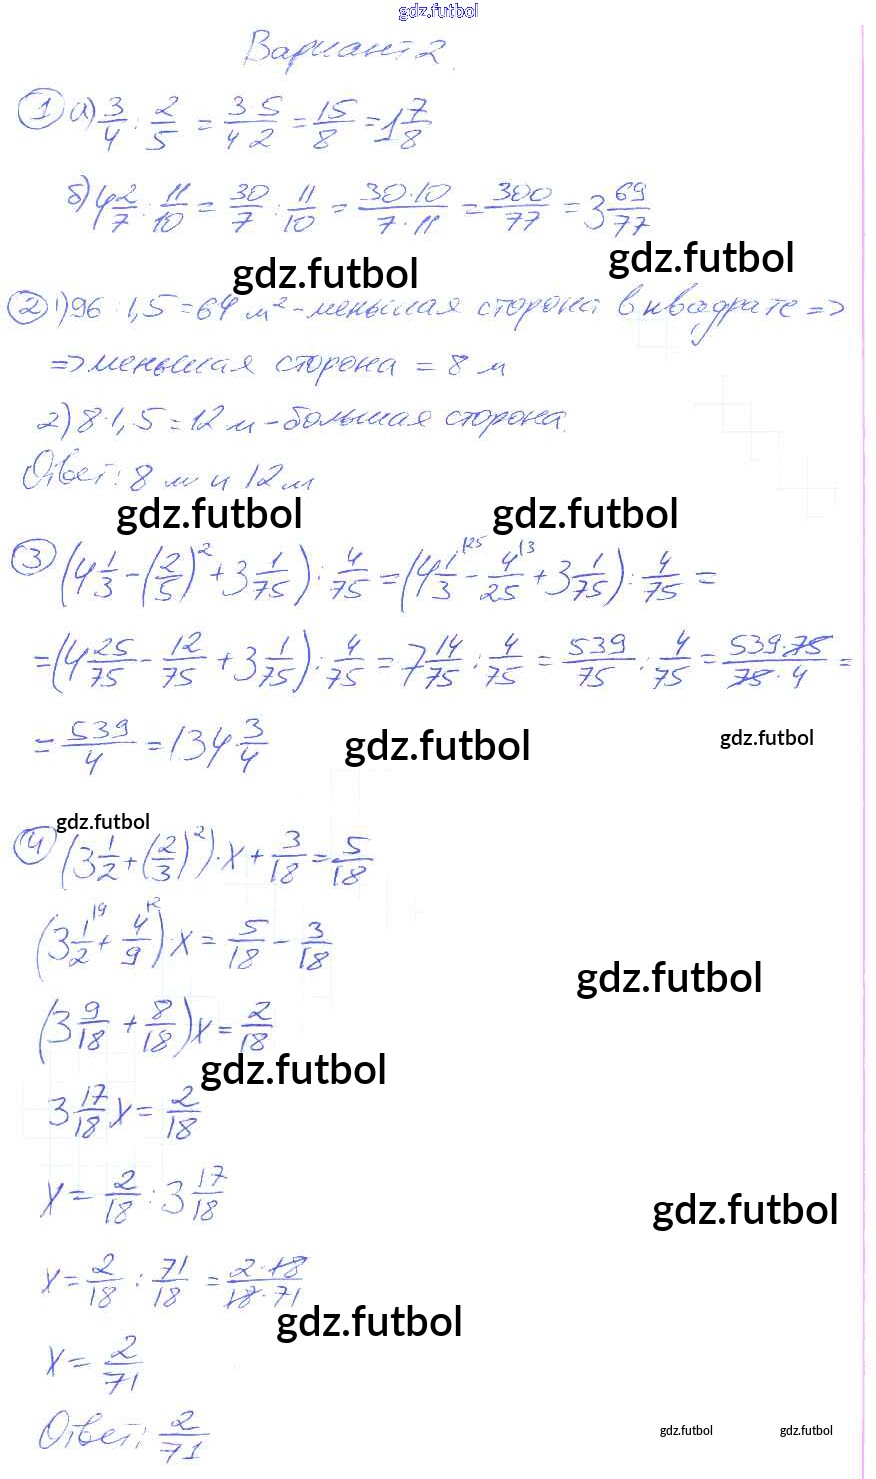 gdz.futbol
Вариант 2.
① а) 3/4 : 2/5 = 3 5/4 2 = 15/8 = 1 7/8
б) 4 2/7 : 11/10 = 30/7 : 11/10 = 30·10/7·11 = 300/77 = 3 69/77
gdz.futbol gdz.futbol
② 1) 96 : 1,5 = 64 м² - меньшая сторона в квадрате =>
=> меньшая сторона = 8 м
2) 8·1,5 = 12 м - большая сторона.
Ответ: 8 м и 12 м
gdz.futbol gdz.futbol
③ (4 1/3 - (2/5)² + 3 1/75) : 4/75 = (4 1/3 |25 - 4/25 |3 + 3 1/75) : 4/75 =
= (4 25/75 - 12/75 + 3 1/75) : 4/75 = 7 14/75 : 4/75 = 539/75 : 4/75 = 539·75/75·4 =
= 539/4 = 134 3/4
gdz.futbol gdz.futbol
gdz.futbol
④ (3 1/2 + (2/3)²)·x + 3/18 = 5/18
(3 1/2 |9 + 4/9 |2)·x = 5/18 - 3/18
gdz.futbol
(3 9/18 + 8/18)x = 2/18
gdz.futbol
3 17/18 x = 2/18
x = 2/18 : 3 17/18
gdz.futbol
x = 2/18 : 71/18 = 2·18/18·71
gdz.futbol
x = 2/71
Ответ: 2/71
gdz.futbol gdz.futbol